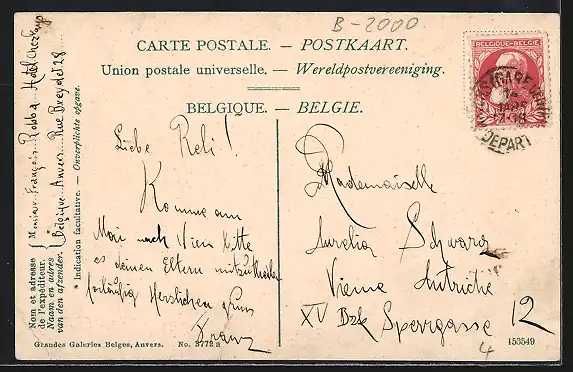 B-2000
CARTE POSTALE. — POSTKAART.
Union postale universelle. — Wereldpostvereeniging.
BELGIQUE. — BELGIE.
BELGIQUE-BELGIE
DEPART
Liebe Reli!
Komme am
Mai nach Wien bitte
es deinen Eltern mitzuteilen
vorläufig Herzlichen Gruss
Franz
Mademoiselle
Aurelia Schwarz
Vienne Autriche
XV Bzk Sperrgasse 12
4
Nom et adresse de l'expéditeur.
Naam en adres van den afzender.
Monsieur François Robba Hotel
Belgique Anvers Rue Breydel 28
* Indication facultative. — Onverplichte opgave.
Grandes Galeries Belges, Anvers. No. 3772 a
153549